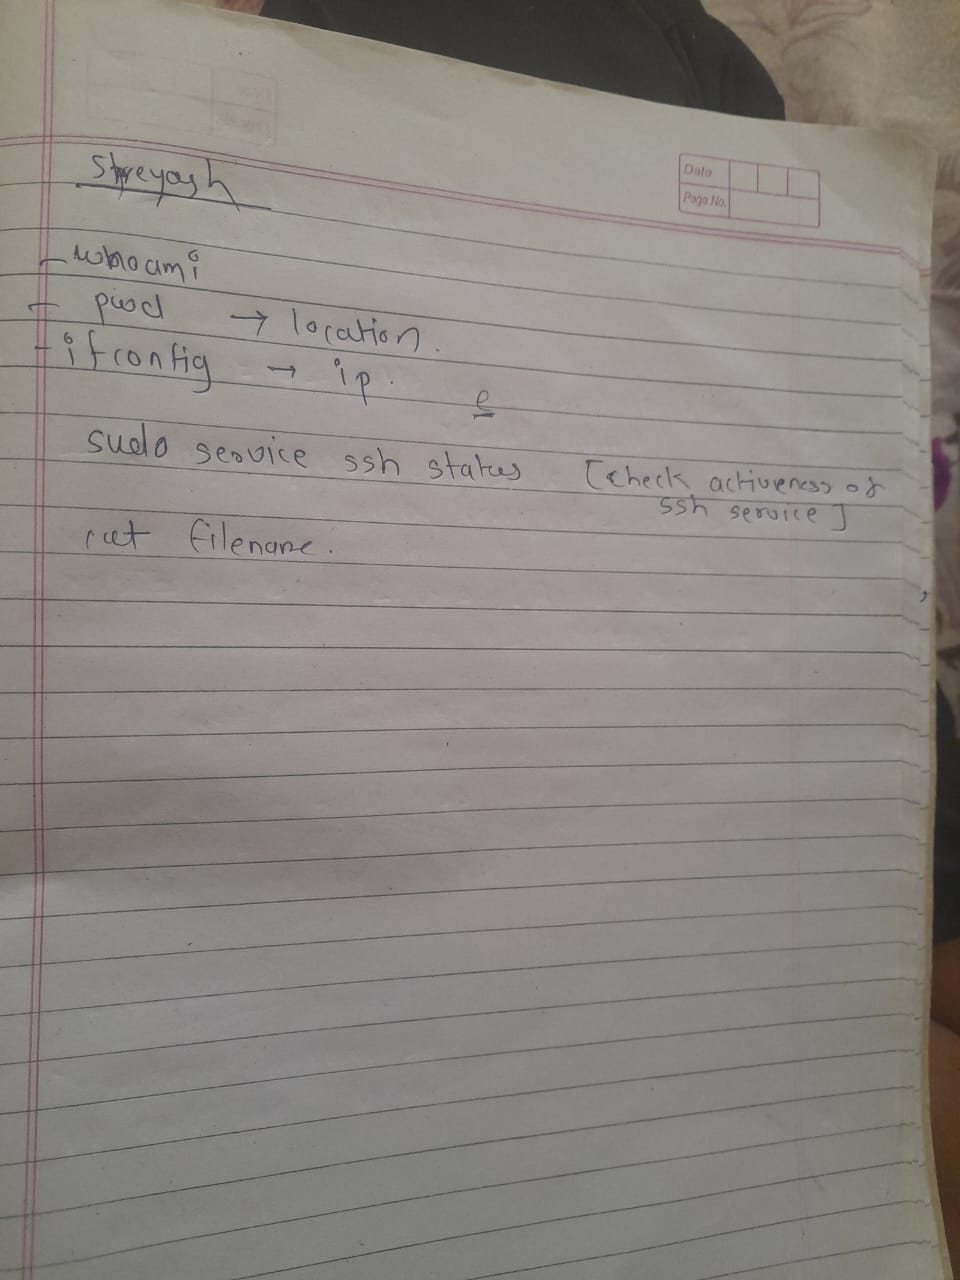 Shreyash
Date
Page No.
- whoami
- pwd → location.
- ifconfig → ip.
e
sudo service ssh status [check activeness of
ssh service]
cat filename.